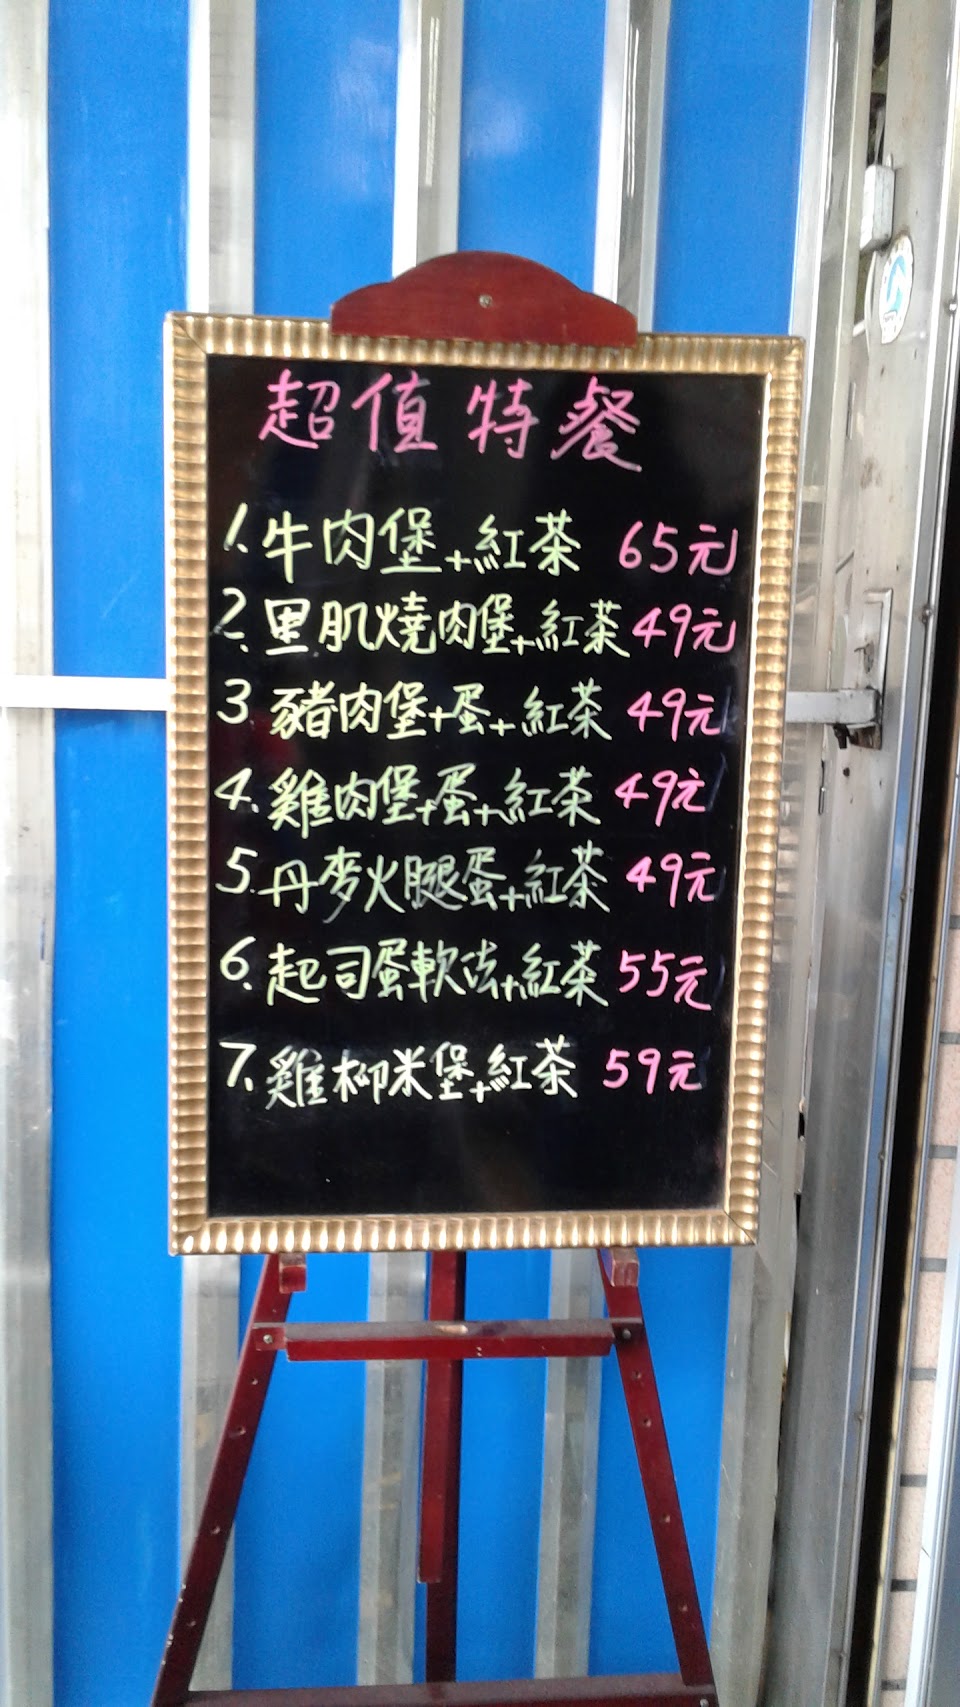 超值特餐
1. 牛肉堡+紅茶 65元
2. 里肌燒肉堡+紅茶 49元
3 豬肉堡+蛋+紅茶 49元
4. 雞肉堡+蛋+紅茶 49元
5. 丹麥火腿蛋+紅茶 49元
6. 起司蛋軟法+紅茶 55元
7. 雞柳米堡+紅茶 59元